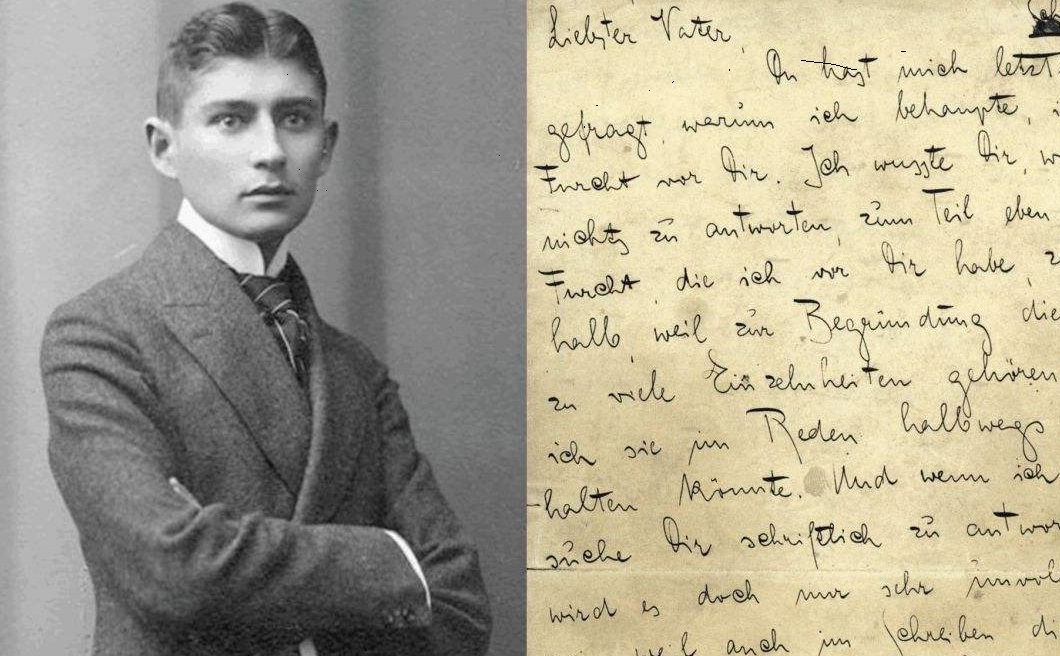 Liebster Vater,
Du hast mich letzt
gefragt, warum ich behaupte,
Furcht vor Dir. Ich wusste Dir,
nichts zu antworten, zum Teil eben
Furcht, die ich vor Dir habe,
halb, weil zur Begründung die
zu viele Einzelnheiten gehören
ich sie im Reden halbwegs
halten könnte. Und wenn ich
suche Dir schriftlich zu antwor
wird es doch nur sehr unvol
weil auch im Schreiben di